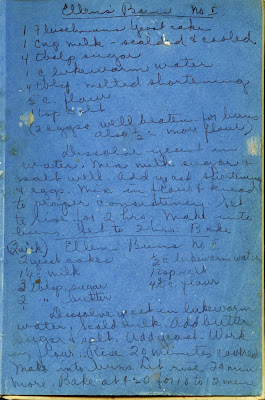 Ellen's Buns No I
1 Fleischmans Yeast cake
1 Cup milk - scalded & cooled
4 tbsp sugar
1 c lukewarm water
4 tblsp melted shortening
5 c. flour
1 tsp salt
(2 eggs well beaten for buns
also ½ c more flour)
Dissolve yeast in
water. Mix milk sugar &
salt well. Add yeast shortening
& eggs. Mix in flour & knead
to proper consistency. Let
to rise for 2 hrs. Make into
buns. Let to 2 hrs. Bake
(Quick) Ellens Buns No II
2 yeast cakes ½ c lukewarm water
1½ c milk 1 tsp salt
2 tblsp. sugar 4½ c flour
2 " butter
Dissolve yeast in lukewarm
water, scald milk. Add butter
sugar & salt. Add yeast. Work
in flour. Rise 20 minutes covered
Make into buns. Let rise 20 min
more. Bake at 420 for 10 to 12 mins